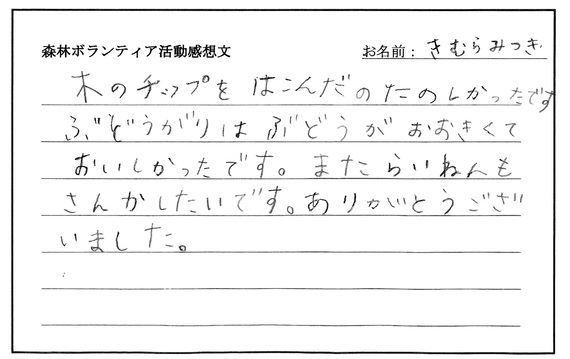 森林ボランティア活動感想文
お名前：きむらみつき
木のチップをはこんだのたのしかったです
ぶどうがりはぶどうがおおきくて
おいしかったです。またらいねんも
さんかしたいです。ありがとうござ
いました。